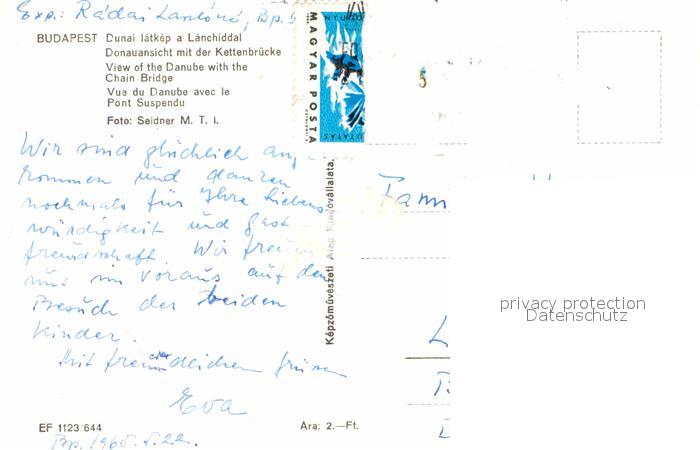 Exp.: Rádai Lászlóné, Bp.
BUDAPEST Dunai látkép a Lánchiddal
Donauansicht mit der Kettenbrücke
View of the Danube with the
Chain Bridge
Vue du Danube avec le
Pont Suspendu
Foto: Seidner M. T. I.
MAGYAR POSTA
5
Wir sind glücklich ange-
kommen und danken
nochmals für Ihre Liebens-
würdigkeit und Gast-
freundschaft. Wir freuen
uns im voraus auf den
Besuch der beiden
Kinder.
Mit freundlichen Grüssen
Eva
EF 1123/644
Ára: 2.—Ft.
Bp. 1965. 5. 22.
Képzőművészeti Alap Kiadóvállalata,
Fam
privacy protection
Datenschutz